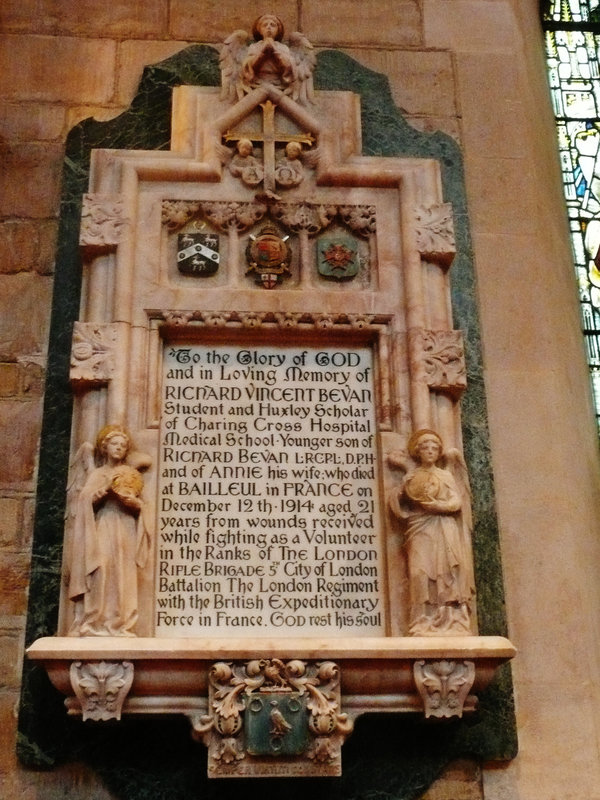 To the Glory of GOD
and in Loving Memory of
RICHARD VINCENT BEVAN
Student and Huxley Scholar
of Charing Cross Hospital
Medical School · Younger son of
RICHARD BEVAN L·R·C·P·L, D.P.H·
and of ANNIE his wife; who died
at BAILLEUL in FRANCE on
December 12th · 1914 · aged 21
years from wounds received
while fighting as a Volunteer
in the Ranks of The London
Rifle Brigade 5th City of London
Battalion The London Regiment
with the British Expeditionary
Force in France. God rest his Soul